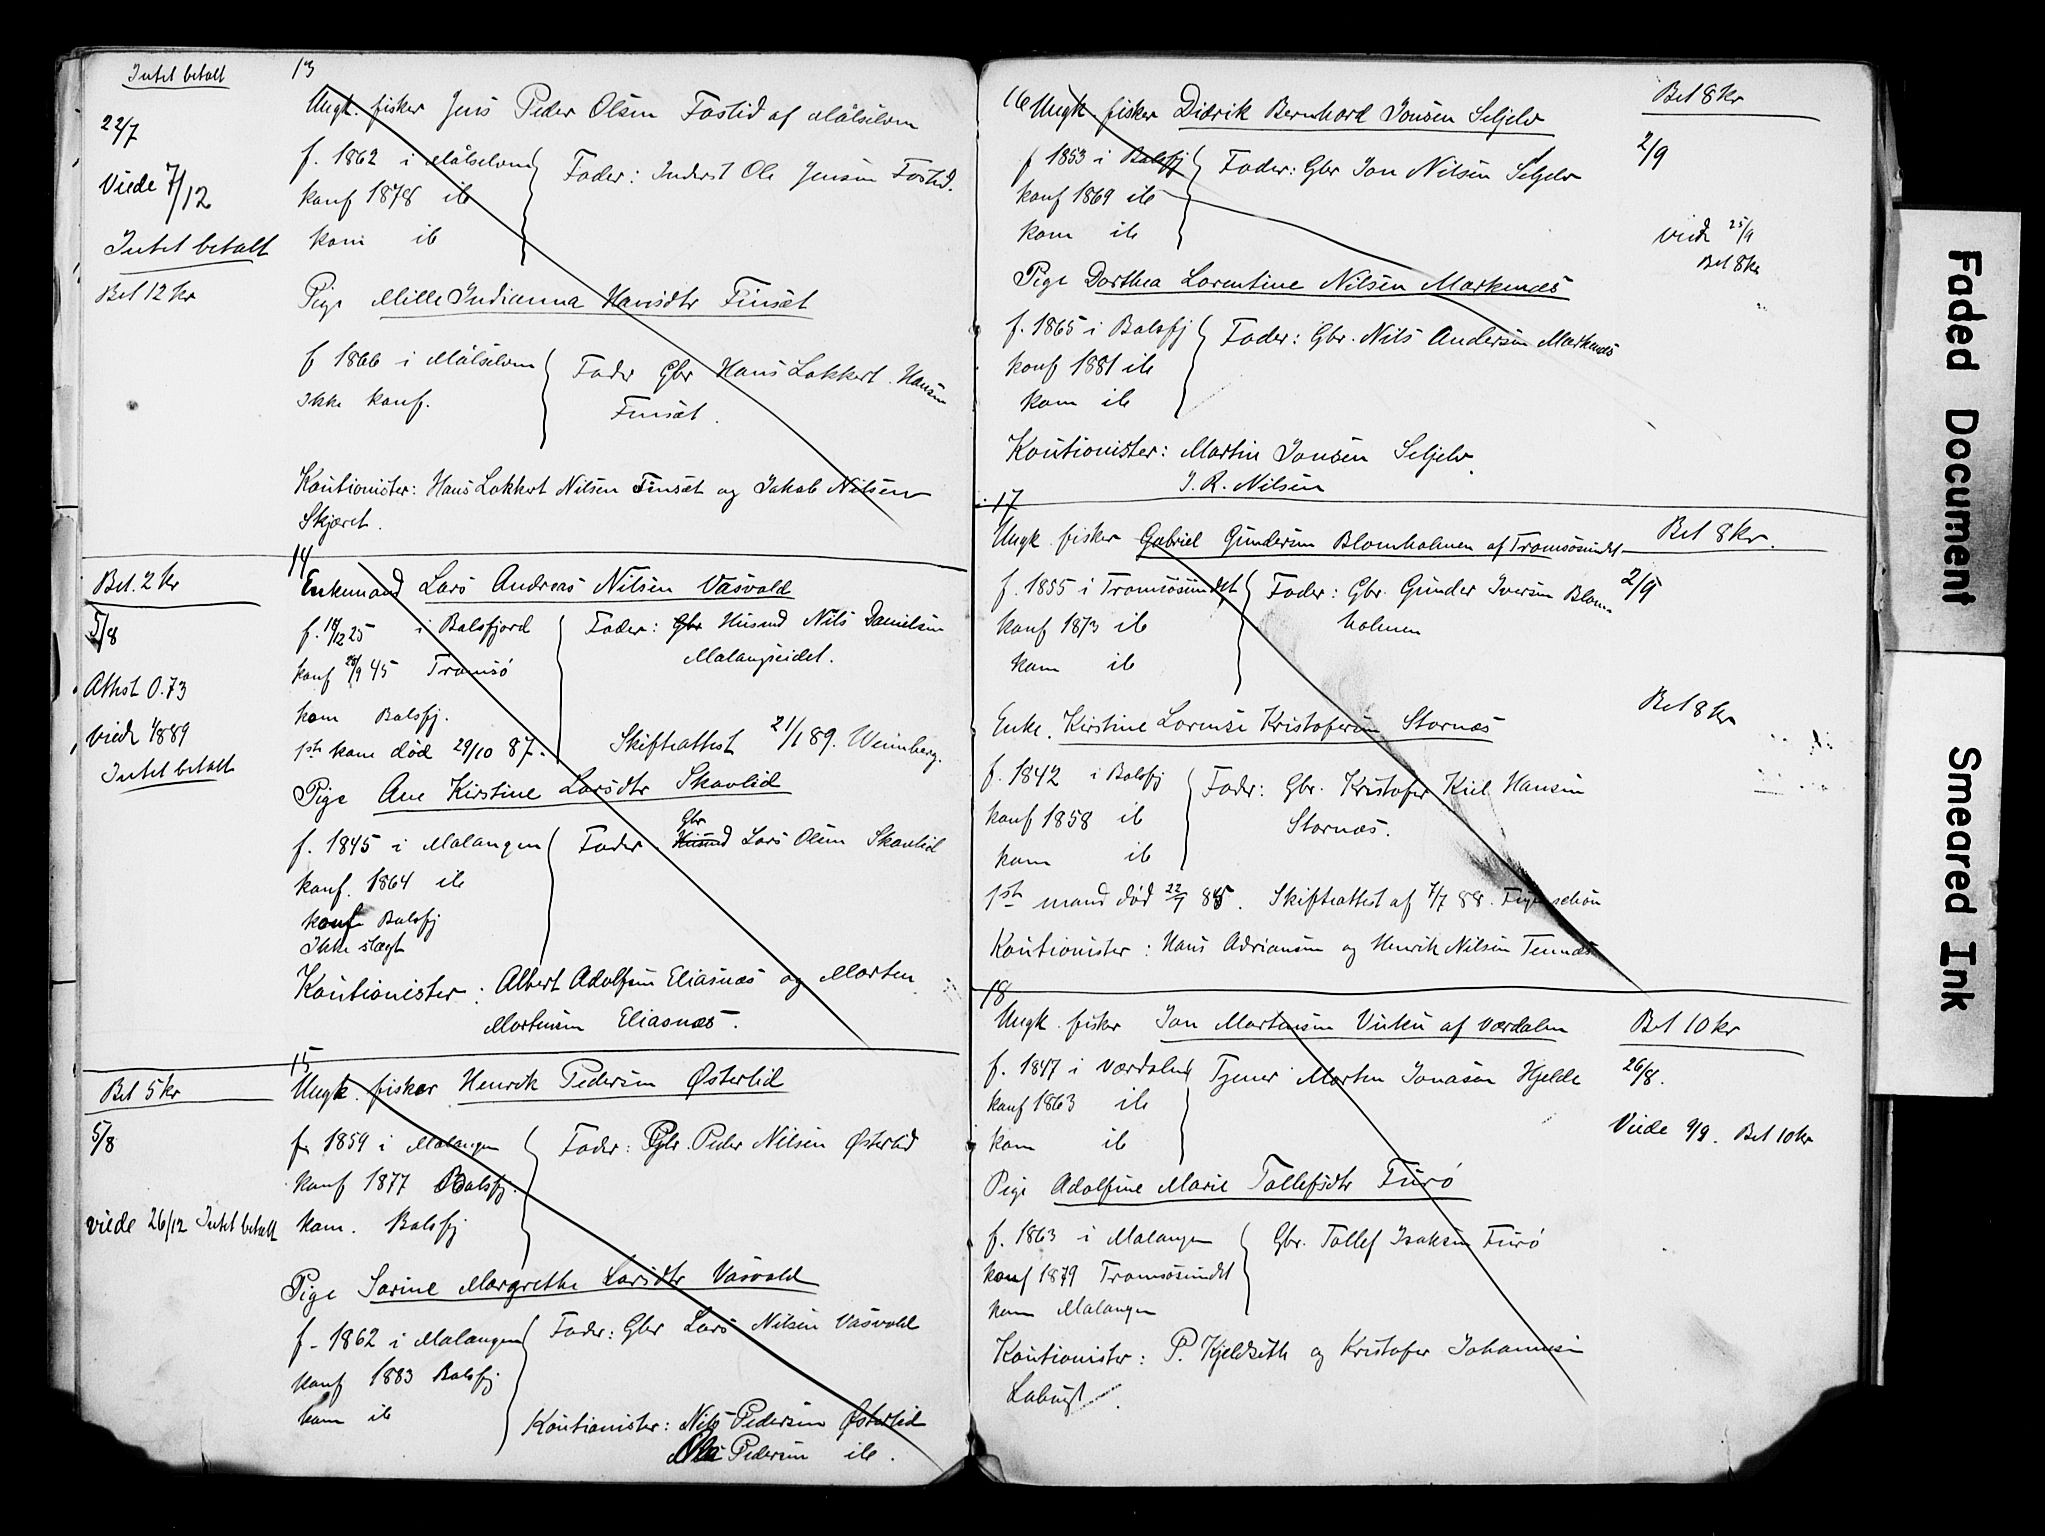 Intet betalt
13
Ungk. fisker Jens Peder Olsen Fostid af Målselven
22/7
f. 1862 i Målselven
Fader: Inderst Ole Jensen Fostid.
Viede 7/12
konf 1878 ib
kom ib
Intet betalt
Bet 12 kr
Pige Mille Indianna Hansdtr Finsæt
f 1866 i Målselven
Fader Gbr Hans Lokkert Hansen
Ikke konf.
Finsæt.
Kautionister: Hans Lokkert Nilsen Finsæt og Jakob Nilsen
Skjæret.
14
Bet. 2 kr
Enkemand Lars Andreas Nilsen Vasvold
5/8
f. 18/12 25 i Balsfjord
Fader: Gbr Husmd Nils Danielsen
Malangseidet.
konf 28/9 45 Tromsø
Attest 0.73
kom Balsfj.
viede 1889
1ste kone død 29/10 87.
Skifteattest 21/1 89. Weinberg.
Intet betalt
Pige Ane Kirstine Larsdtr Skavlid
f. 1845 i Malangen
Fader Husmd Gbr Lars Olsen Skavlid
konf. 1864 ib
kom Balsfj
Ikke slægt
Kautionister: Albert Adolfsen Eliasnæs og Morten
Mortensen Eliasnæs.
15
Bet 5 kr
Ungk. fisker Henrik Pedersen Østerlid
5/8
f 1859 i Malangen
Fader: Gbr. Peder Nilsen Østerlid
konf 1877 Balsfj.
viede 26/12 Intet betalt
kom. Balsfj
Pige Sarine Margrethe Larsdtr Vasvold
f. 1862 i Malangen
Fader: Gbr Lars Nilsen Vasvold
konf 1883 Balsfj
kom ib
Kautionister: Nils Pedersen Østerlid
Ole Pedersen ib.
16
Ungk. fisker Didrik Bernhard Jonsen Seljelv
Bet 8 kr
f 1853 i Balsfj
Fader: Gbr Jon Nilsen Seljelv
2/9
konf 1869 ib
kom ib
viede 25/9
Bet 8 kr
Pige Dorthea Lorentine Nilsen Markenæs
f. 1865 i Balsfj
Fader: Gbr. Nils Andersen Markenæs
konf 1881 ib
kom ib
Kautionister: Martin Jonsen Seljelv
J. R. Nilsen
17
Ungk. fisker Gabriel Gundersen Blomholmen af Tromsøsundet
Bet 8 kr.
f. 1855 i Tromsøsundet
Fader: Gbr. Gunder Iversen Blom-
holmen
2/9
konf 1873 ib
kom ib
Enke. Kirstine Lorense Kristofersen Stornæs
Bet 8 kr
f. 1842 i Balsfj
Fader: Gbr. Kristofer Kiil Hansen
Stornæs.
konf 1858 ib
kom ib
1ste mand død 22/7 85. Skifteattest af 7/7 88.
Kautionister: Hans Adriansen og Henrik Nilsen Tennæs
18
Ungk. fisker Jon Mortensen Vuku af Værdalen
Bet 10 kr
f. 1847 i Værdalen
Tjener Morten Jonasen Hjelde
26/8.
konf 1863 ib
kom ib
Viede 9/9. Bet 10 kr
Pige Adolfine Marie Tollefsdtr Furø
f. 1863 i Malangen
Gbr. Tollef Isaksen Furø
konf 1879 Tromsøsundet
kom Malangen
Kautionister: P. Kjeldseth og Kristofer Johannesen
Faded Document
Smeared Ink